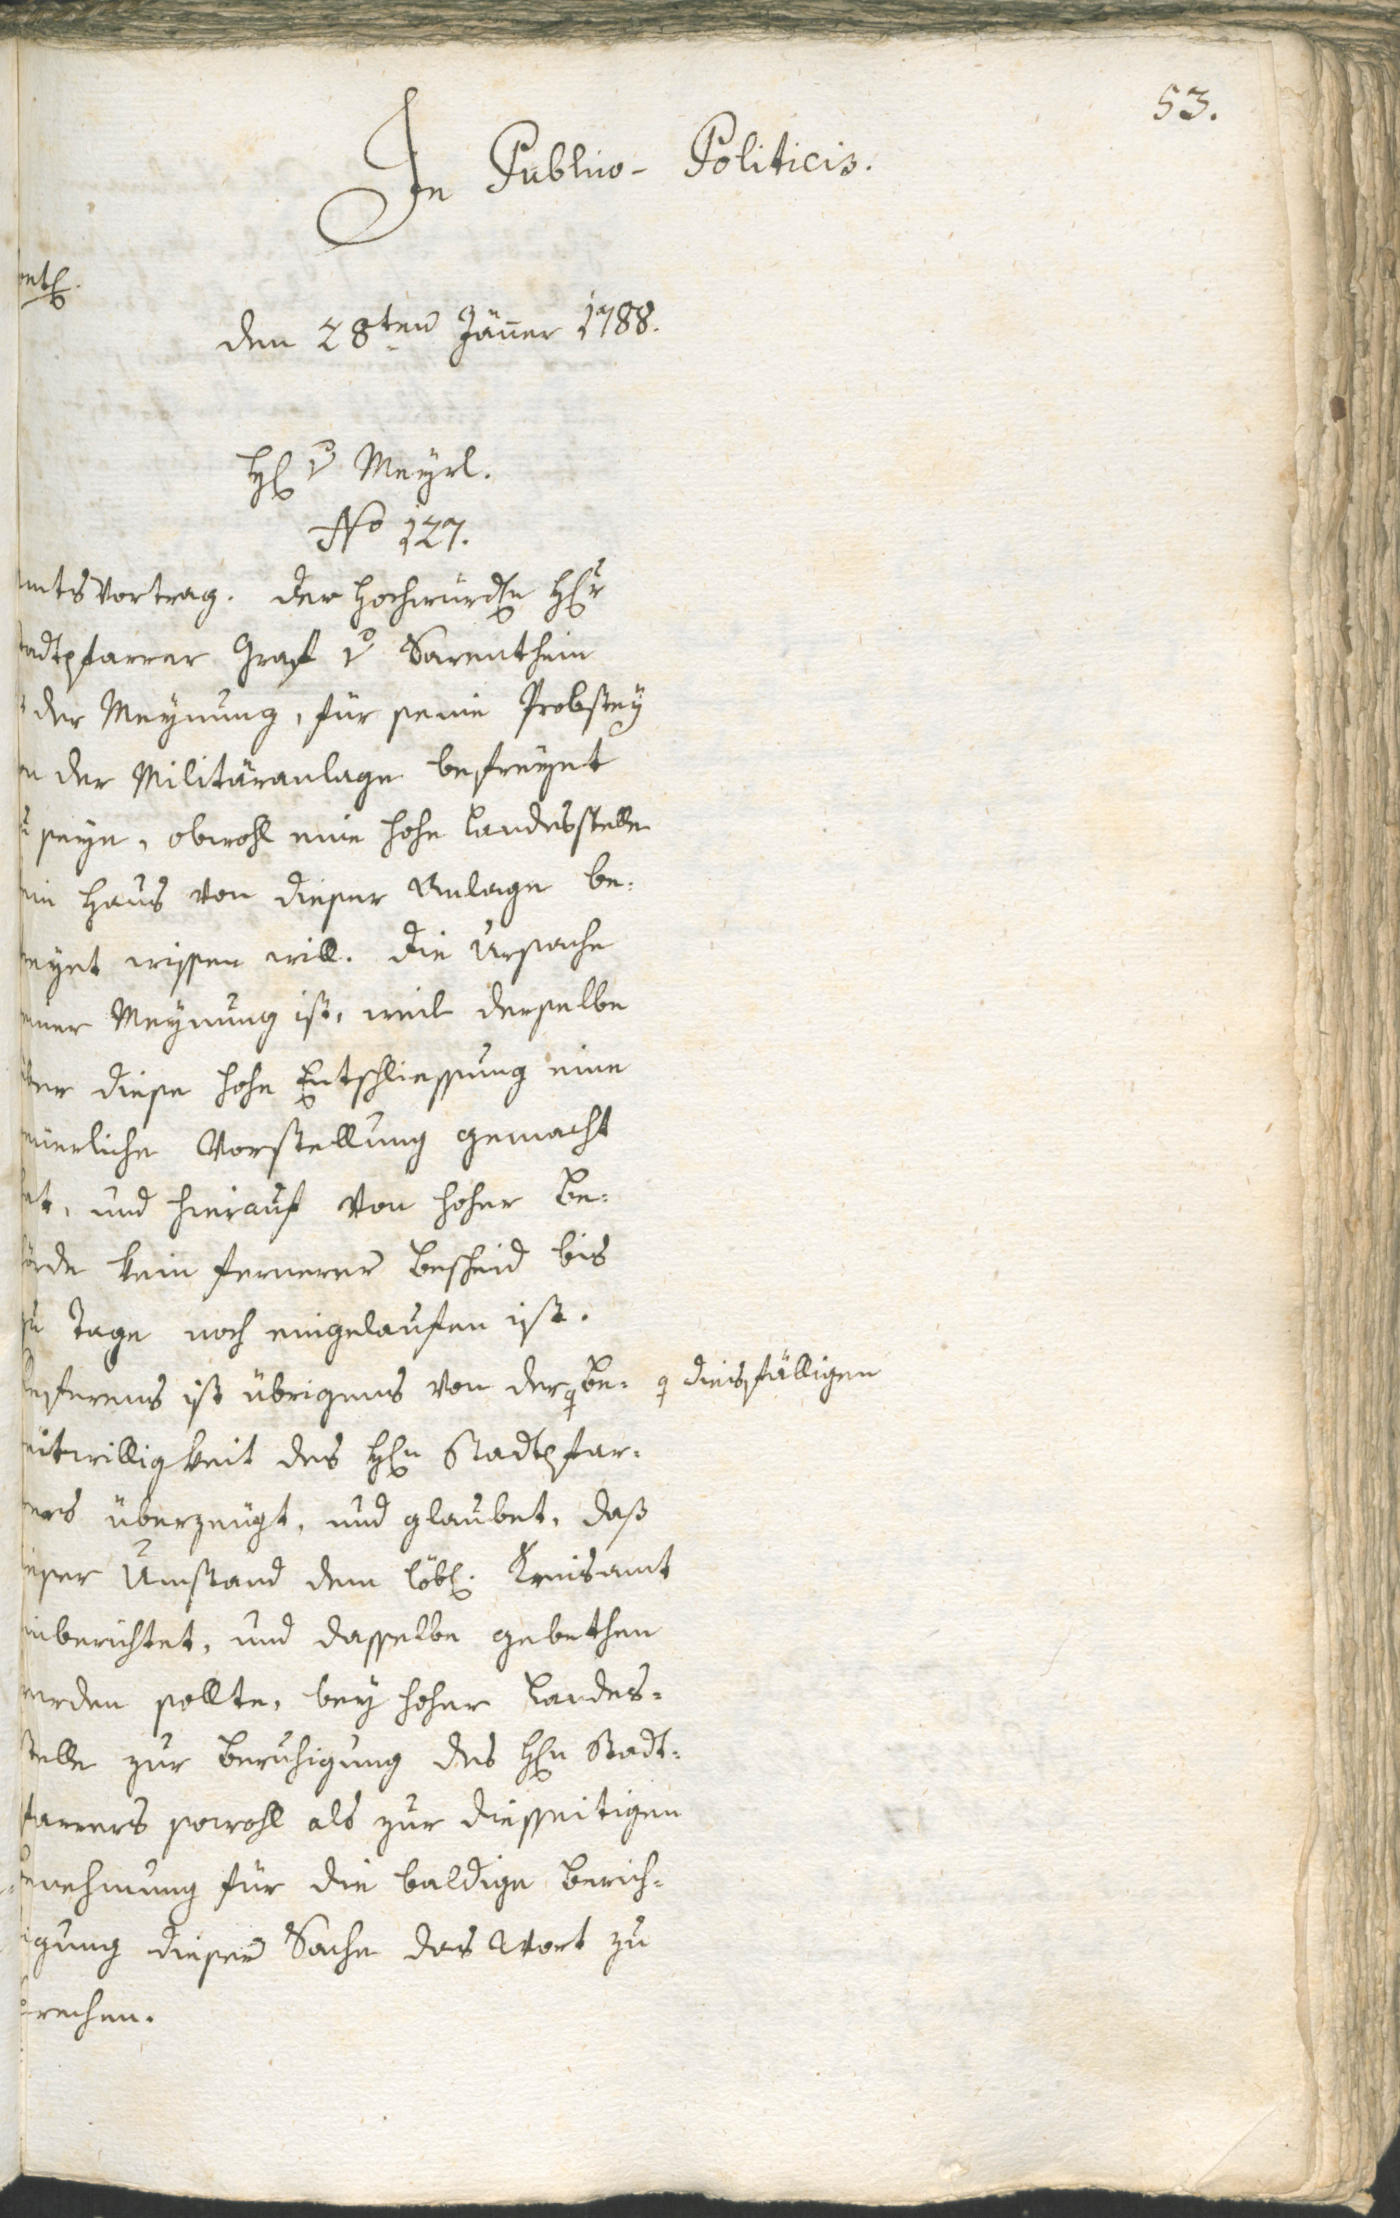 53.
In Publico- Politicis.
den 28ten Jäner 1788.
H v Meyrl.
No 127.
mtsvortrag. Der Hochwürden H
tadtpfarrer Graf v Sarenthein
der Meynung, für seine Probstey
on der Militäranlage befreyet
u seyn, obwohl eine hohe Landesstelle
ein Haus von dieser Anlage be¬
reyet wissen will. Die Ursache
einer Meynung ist, weil derselbe
ber diese hohe Entschliessung eine
nnerliche Vorstellung gemacht
at, und hierauf von hoher Be¬
örde kein fernerer Bescheid bis
zu Tage noch eingelaufen ist.
eferens ist übrigens von der Be¬
diesfälligen
eitwilligkeit des Hn Stadtpfar¬
rers überzeugt, und glaubet, daß
ieser Umstand dem löbl. Kreisamt
inberichtet, und dasselbe gebethen
erden sollte, bey hoher Landes¬
telle zur Beruhigung des Hn Stadt¬
farrers sowohl als zur diesseitigen
enehmung für die baldige Berich¬
igung dieser Sache das Wort zu
rechen.